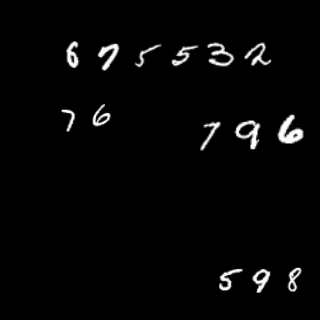 675532
76
796
598